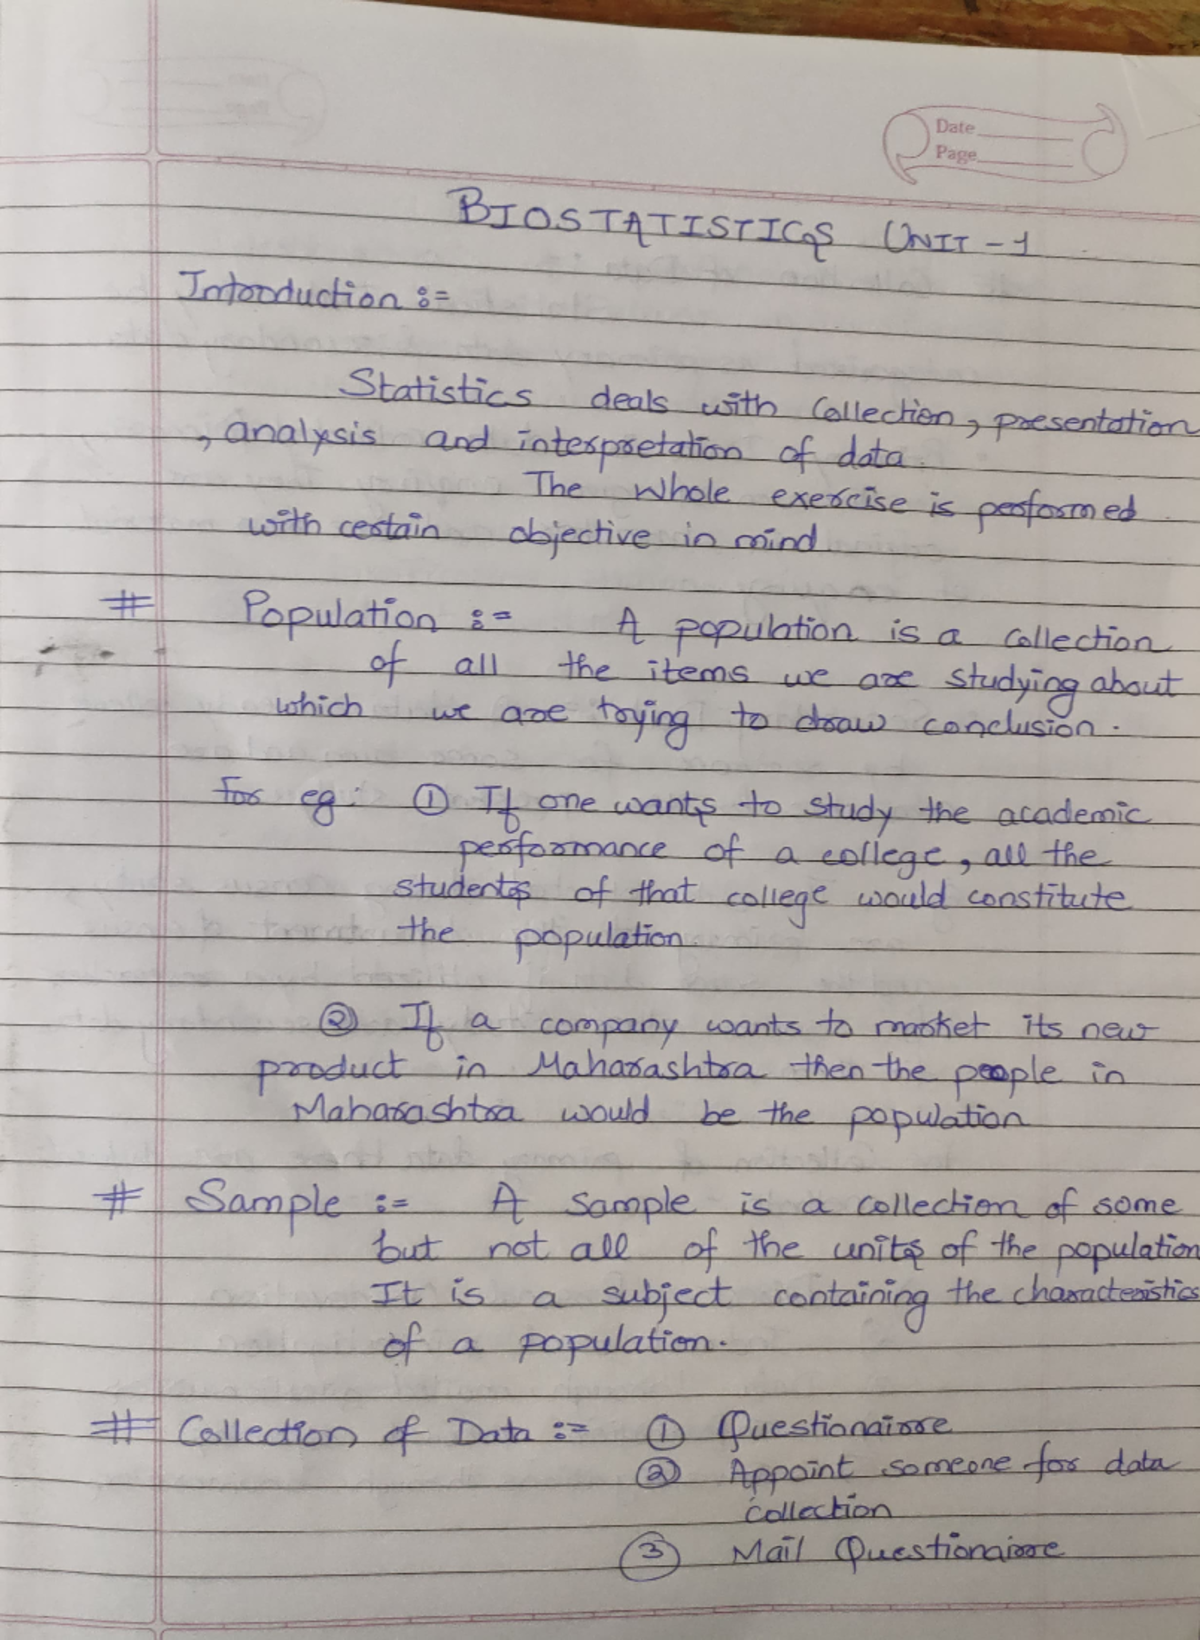 Date
Page
BIOSTATISTICS UNIT - 1
Introduction :=
Statistics deals with Collection, presentation
, analysis and interpretation of data.
The Whole exercise is performed
with certain objective in mind
# Population := A population is a collection
of all the items we are studying about
which we are trying to draw conclusion.
for eg: ① If one wants to study the academic
performance of a college, all the
students of that college would constitute
the population
② If a company wants to market its new
product in Maharashtra then the people in
Maharashtra would be the population
# Sample := A sample is a collection of some
but not all of the units of the population
It is a subject containing the characteristics
of a population.
# Collection of Data := ① Questionairre
② Appoint someone for data
collection
③ Mail Questionairre